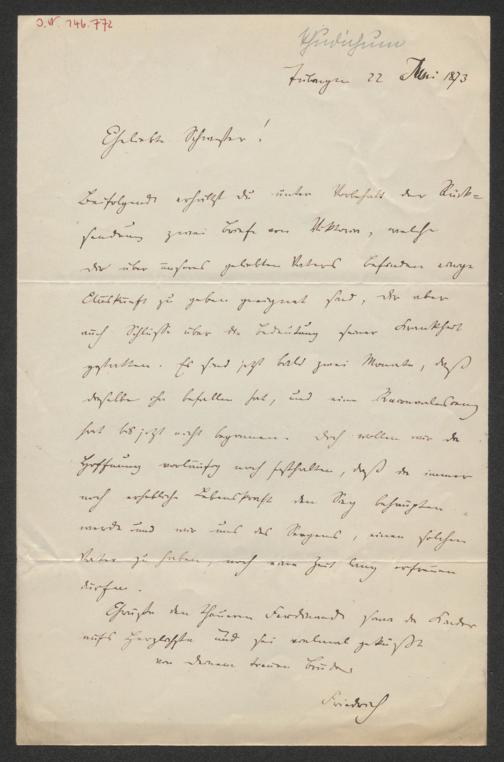 J.N. 146.772
Thudichum
Tübingen 22 Juni 1873
Geliebte Schwester!
Beifolgend erhältst du unter Vorbehalt der Rück-
sendung zwei Briefe von Viktoria, welche
dir über unseres geliebten Vaters Befinden einige
Auskunft zu geben geeignet sind, dir aber
auch Schlüsse über die Bedeutung seiner Krankheit
gestatten. Es sind jetzt bald zwei Monate, daß
dieselbe ihn befallen hat, und eine
hat bis jetzt nicht begonnen. Doch wollen wir die
Hoffnung vorläufig noch festhalten, daß die immer
noch erhebliche Lebenskraft den Sieg behaupten
werde und wir uns des Segens, einen solchen
Vater zu haben, noch eine Zeit lang erfreuen
dürfen.
Grüße den theuren Ferdinand samt den Kindern
aufs Herzlichste und sei vielmal geküßt
von deinem treuen Bruder
Friedrich